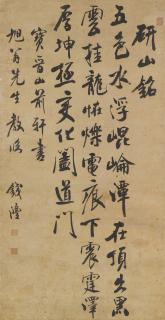 研山銘
五色水浮崐崘潭在頂出黑
雲挂龍怪爍電痕下震霆澤
厚坤極变化闔道門
寶晉山前軒書
旭翁先生教
錢灃